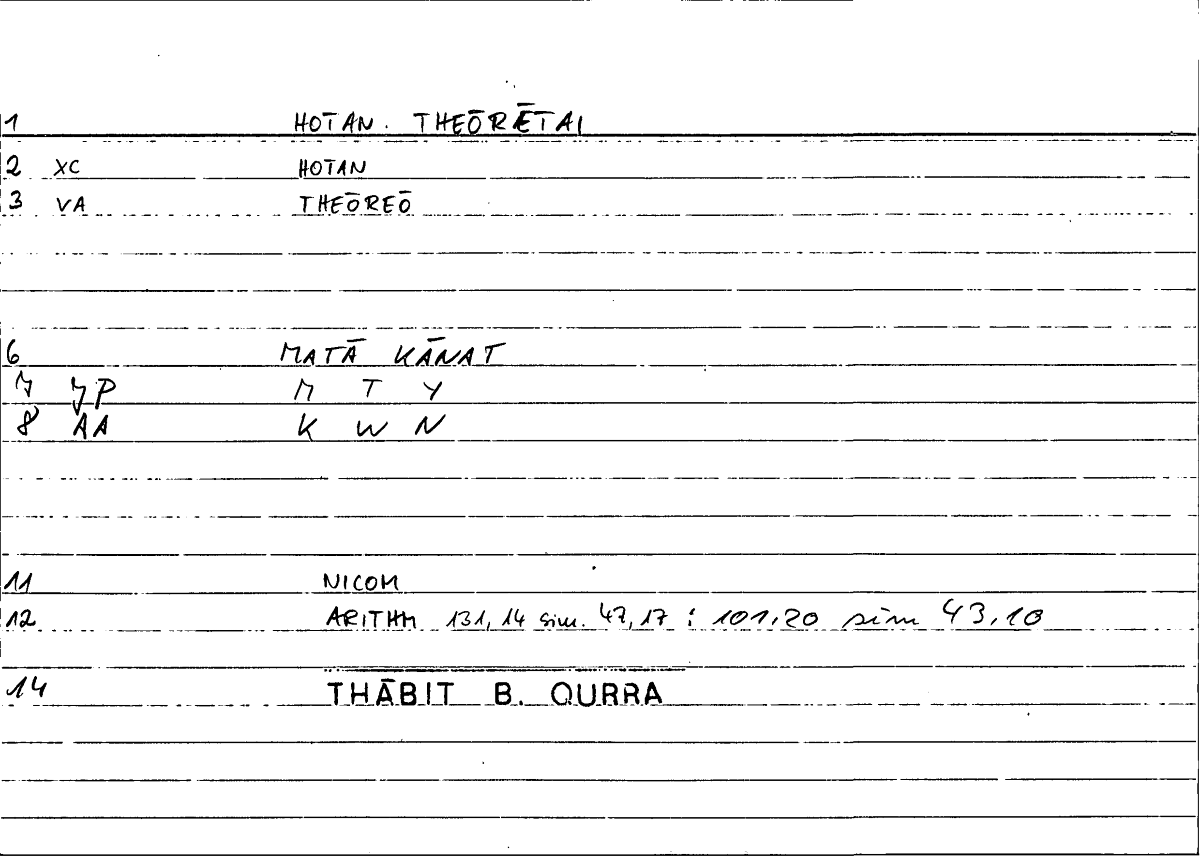 1 HOTAN. THEŌRĒTAI
2 XC HOTAN
3 VA THEŌREŌ
6 MATĀ KĀNAT
7 JP M T Y
8 AA K W N
11 NICOM
12 ARITHM 131,14 sim. 47,17 ; 101,20 sim 43,10
14 THĀBIT B. QURRA